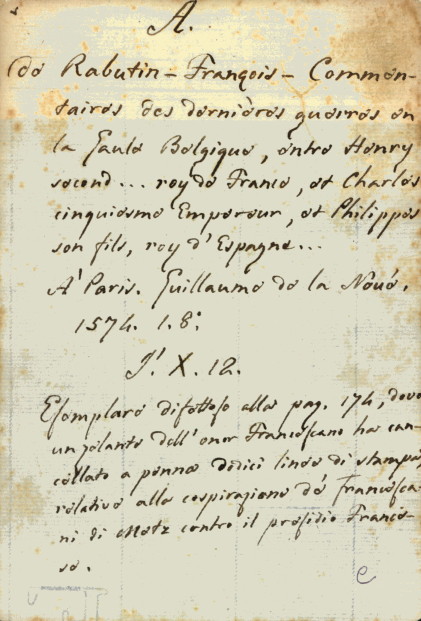 A.
(de Rabutin - François - Commen-
taires des dernières guerres en
la Gaule Belgique, entre Henry
second... roy de France, et Charles
cinquiesme Empereur, et Philippes
son fils, roy d'Espagne...
A' Paris. Guillaume de la Nouë.
1574. 1. 8º
J'. X. 12.
Esemplare difettoso alla pag. 174, dove
un zelante dell'onor Francescano ha can-
cellato a penna dodici linee di stampa,
relative alla cospirazione de' Francesca-
ni di Metz contro il presidio France-
se.
e